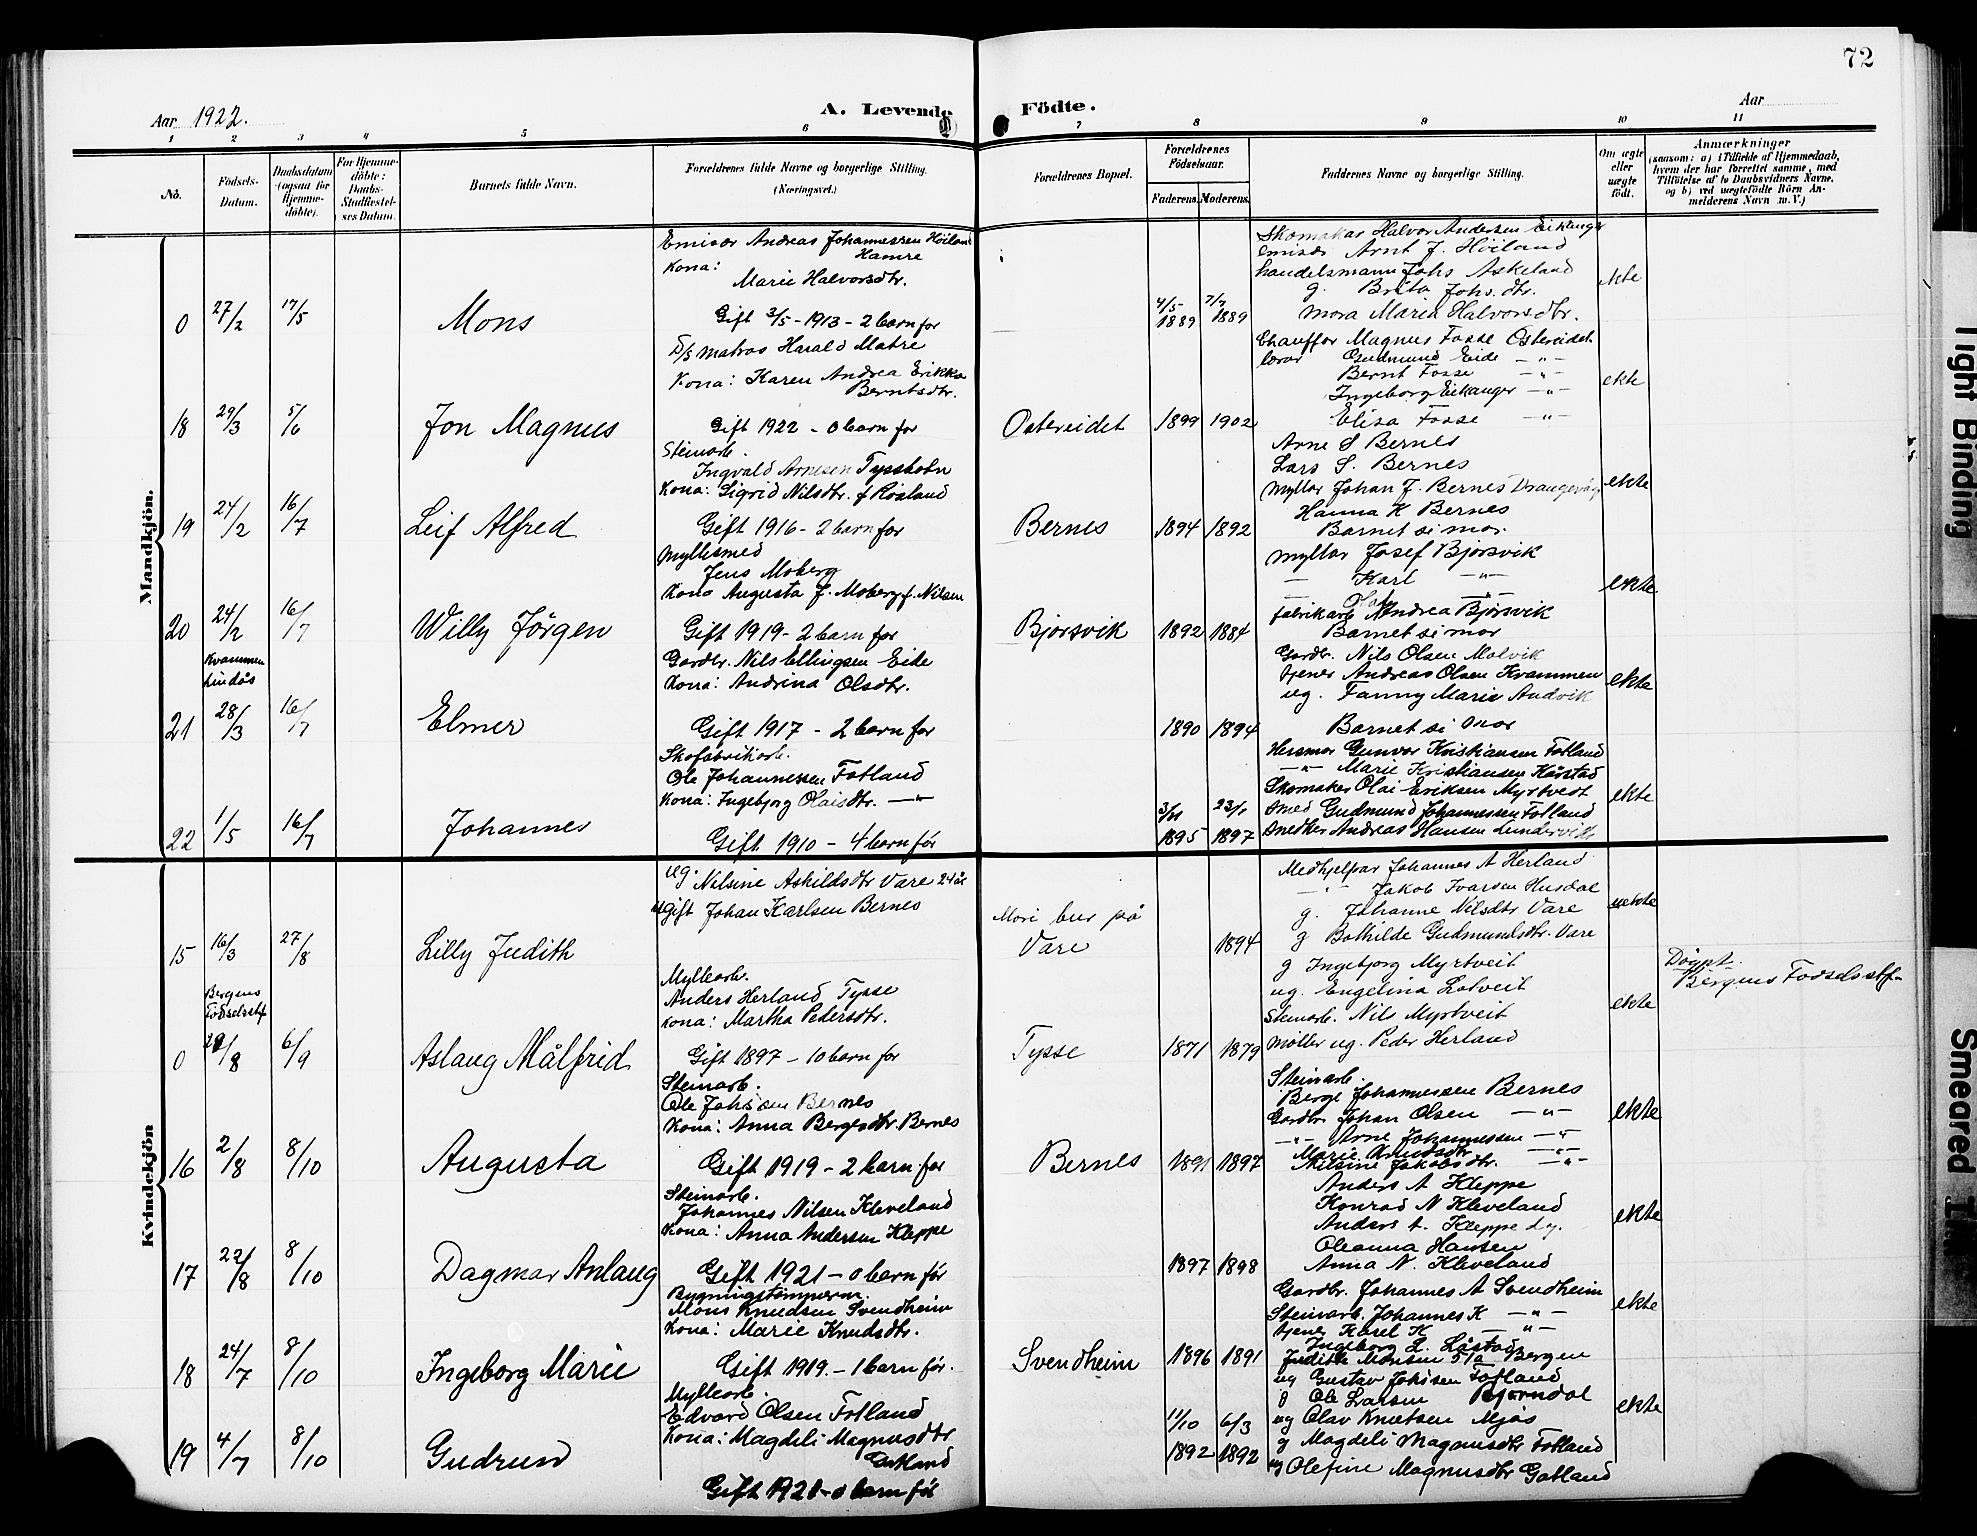 72
Aar 1922.
A. Levende Födte.
Aar
1 2 3 4 5 6 7 8 9 10 11
No.
Födsels-Datum.
Daabsdatum (ogsaa for Hjemme-döbte).
For Hjemme-döbte: Daabs-Stadfæstel-ses Datum.
Barnets fulde Navn.
Forældrenes fulde Navne og borgerlige Stilling. (Næringsvei.)
Forældrenes Bopæl.
Forældrenes Födselsaar.
Faderens. Moderens.
Faddernes Navne og borgerlige Stilling.
Om ægte eller uægte födt.
Anmærkninger
(saasom: a) i Tilfælde af Hjemmedaab, hvem der har forrettet samme, med Tilföielse af to Daabsvidners Navne, og b) ved uægtefödte Börn An-melderens Navn m. V.)
Mandkjön.
0 27/2 17/5 Mons
Emisær Andreas Johannessen Höiland
Hamre
Kona:
Marie Halvorsdtr.
Gift 3/5 - 1913 - 2 barn for
4/5 1889 7/7 1889
Skomakar Halvor Andersen Eikanger
Emisær Arnt J. Höiland
handelsmann Johs Askeland
g. Brita Johs.dtr.
Mora Marie Halvorsdtr.
ekte
18 29/3 5/6 Jon Magnus
D/s matros Harald Matre
Kona: Karen Andrea Erikka
Berntsdtr.
Gift 1922 - 0 barn for
Ostereidet 1899 1902
Chauffør Magnus Fosse Ostereidet
lærar Gudmund Eide - " -
Bernt Fosse - " -
Ingeborg Eikanger - " -
Elisa Fosse - " -
ekte
19 24/2 16/7 Leif Alfred
Steinarb.
Ingvald Arnesen Tyssholm
Kona: Sigrid Nilsdtr. f Røsland
Gift 1916 - 2 barn for
Bernes 1894 1892
Arne S Bernes
Lars S. Bernes
Myllar Johan J. Bernes Drangevåg
Hanna K Bernes
Barnet si mor.
ekte
20 24/2 16/7 Willy Jörgen
Myllesmed
Jens Moberg
Kona Augusta J. Moberg f. Nilsen
Gift 1919 - 2 barn for
Bjorsvik 1892 1884
Myllar Josef Bjorsvik
- Karl - " -
fabrikarb Andrea Bjorsvik
Barnet si mor
ekte
Kvammen Lindås
21 28/3 16/7 Elmer
Gardbr. Nils Ellingsen Eide
Kona: Andrina Olsdtr.
Gift 1917 - 2 barn for
1890 1894
Gardbr. Nils Olsen Molvik
tjener Andreas Olsen Kvammen
ug. Fanny Marie Andvik
Barnet si mor
ekte
22 1/5 16/7 Johannes
Skofabrikarb.
Ole Johannessen Fotland
Kona: Ingebjorg Olaisdtr. - " -
Gift 1910 - 4 barn før
3/11 1895 23/1 1897
Husmor Gunvor Kristiansen Fotland
- " - Marie Kristiansen Kårstad
Skomaker Olai Eriksen Myrtvedt
smed Gudmund Johannessen Fotland
snedker Andreas Hansen Lundervik
ekte
Kvindekjön
15 16/3 27/8 Lilly Judith
ug. Nilsine Askildsdtr Vare 24 år
Gift Johan Karlsen Bernes
Mori bur på
Vare
1894
Medhjelpar Johannes A Herland
- " - Jakob Ivarsen Husdal
g. Johanne Nilsdtr Vare
g Bothilde Gudmundsdtr. Vare
uekte
Bergens Fodselsstf
0 29/8 6/9 Aslaug Målfrid
Myllearb.
Anders Herland Tysse
Kona: Martha Pedersdtr.
Gift 1897 - 10 barn for
Tysse 1871 1879
g Ingebjorg Myrtveit
ug. Engelina Lotveit
Steinarb. Nils Myrtveit
Møller ug. Peder Herland
ekte
Döypt
Bergens Fodselsstf-
16 2/8 8/10 Augusta
Steinarb.
Ole Johssen Bernes
Kona: Anna Bergesdtr. Bernes
Gift 1919 - 2 barn for
Bernes 1891 1897
Steinarb.
Berge Johannessen Bernes
Gardbr Johan Olsen - " -
- " - Arne Johannessen - " -
Marie Knudsdtr - " -
Nilsine Jakobsdtr. - " -
ekte
17 22/8 8/10 Dagmar Anlaug
Steinarb.
Johannes Nilsen Kleveland
Kona: Anna Andersen Kleppe
Gift 1921 - 0 barn før
1897 1898
Anders A Kleppe
Konrad N Kleveland
Anders A. Kleppe d.y.
Oleanna Hansen
Anna N. Kleveland
ekte
18 24/7 8/10 Ingeborg Marie
Bygningstømmerm.
Mons Knudsen Svendheim
Kona: Marie Knudsdtr.
Gift 1919. - 1 barn før.
Svendheim 1896 1891
Gardbr. Johannes A Svendheim
Steinarb. Johannes K - " -
tjener Karel K - " -
Ingeborg L. Låstad
Judith Monsen 51a Bergen
ekte
19 4/7 8/10 Gudrun
Myllearb.
Edvard Olsen Fotland
Kona: Magdeli Magnusdtr
Gotland
Gift 1921 - 0 barn før
11/10 1892 6/3 1892
ug Gustav Johssen Fotland
g Ole Larsen Bjørndal
ug Olav Knutsen Mjøs
g Magdeli Magnusdtr Fotland
ug Olefine Magnusdtr Gotland
ekte
Tight Binding
Smeared Ink